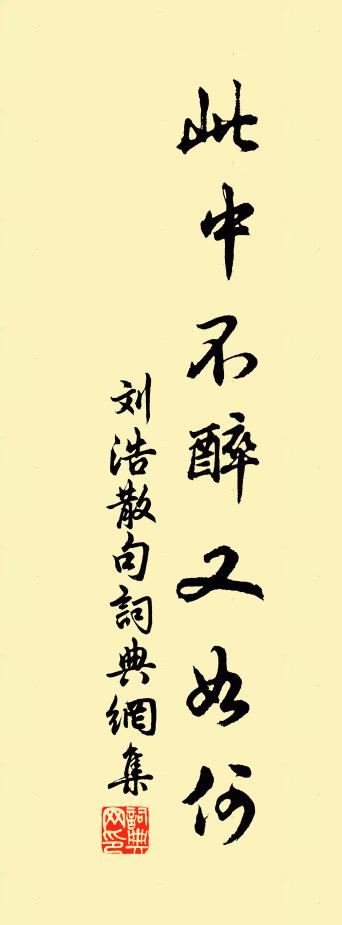 此中不醉又如何
刘浩散句詞典網集
詞典网印